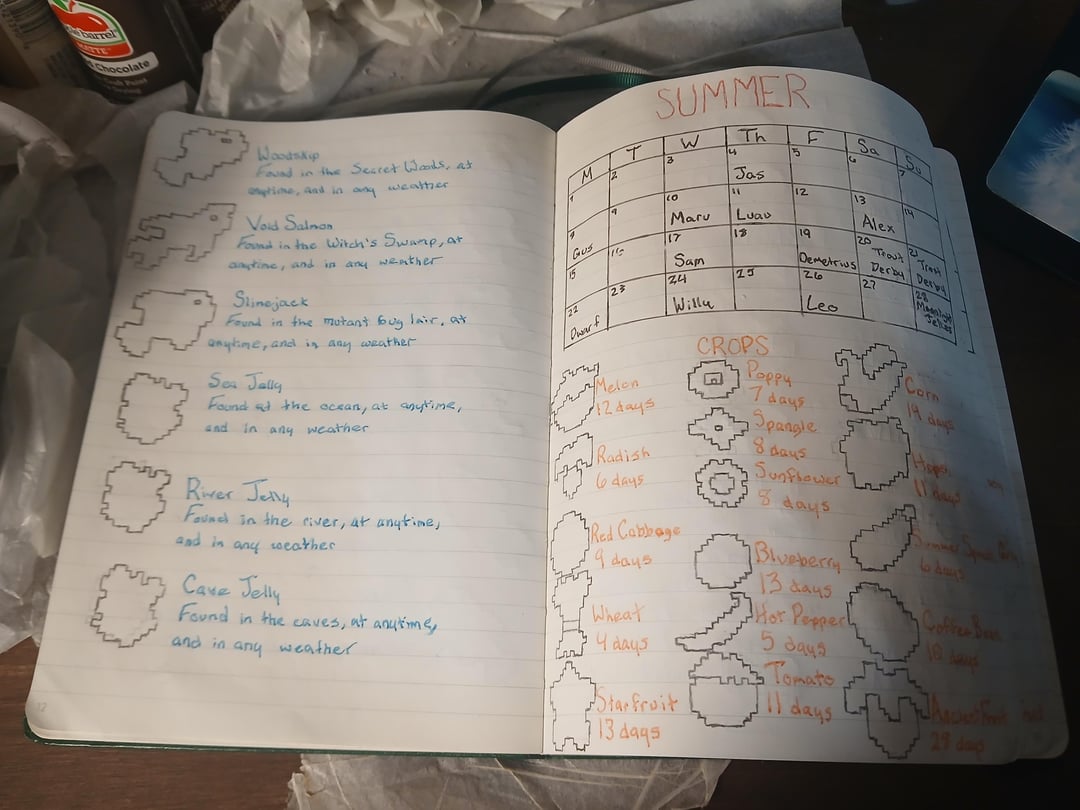 de barrel
MATTE
Chocolate
Woodskip
Found in the Secret Woods, at
anytime, and in any weather
Void Salmon
Found in the Witch's Swamp, at
anytime, and in any weather
Slimejack
Found in the mutant bug lair, at
anytime, and in any weather
Sea Jelly
Found at the ocean, at anytime,
and in any weather
River Jelly
Found in the river, at anytime,
and in any weather
Cave Jelly
Found in the caves, at anytime,
and in any weather
12
SUMMER
M T W Th F Sa Su
1 2 3 4 Jas 5 6 7
8 Gus 9 10 Maru 11 Luau 12 13 Alex 14
15 16 17 Sam 18 19 Demetrius 20 Trout Derby 21 Trout Derby
22 Dwarf 23 24 Willy 25 26 Leo 27 28 Moonlight Jellies
CROPS
Melon
12 days
Radish
6 days
Red Cabbage
9 days
Wheat
4 days
Starfruit
13 days
Poppy
7 days
Spangle
8 days
Sunflower
8 days
Blueberry
13 days
Hot Pepper
5 days
Tomato
11 days
Corn
14 days
Hops
11 days
Summer Squash
6 days
Coffee Bean
10 days
Ancient Fruit
28 days